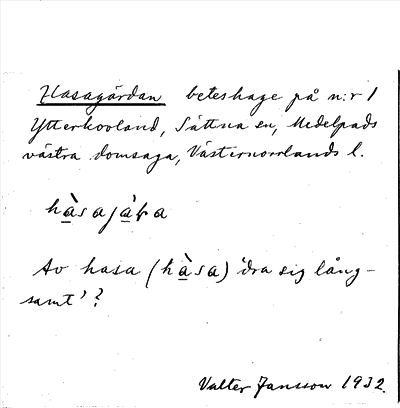 Hasagärdan beteshage på n:r 1
Ytterkovland, Sättna sn, Medelpads
västra domsaga, Västernorrlands l.
hàsajà̤ɽa
Av hasa (hàsa) 'dra sig lång-
samt'?
Valter Jansson 1932.